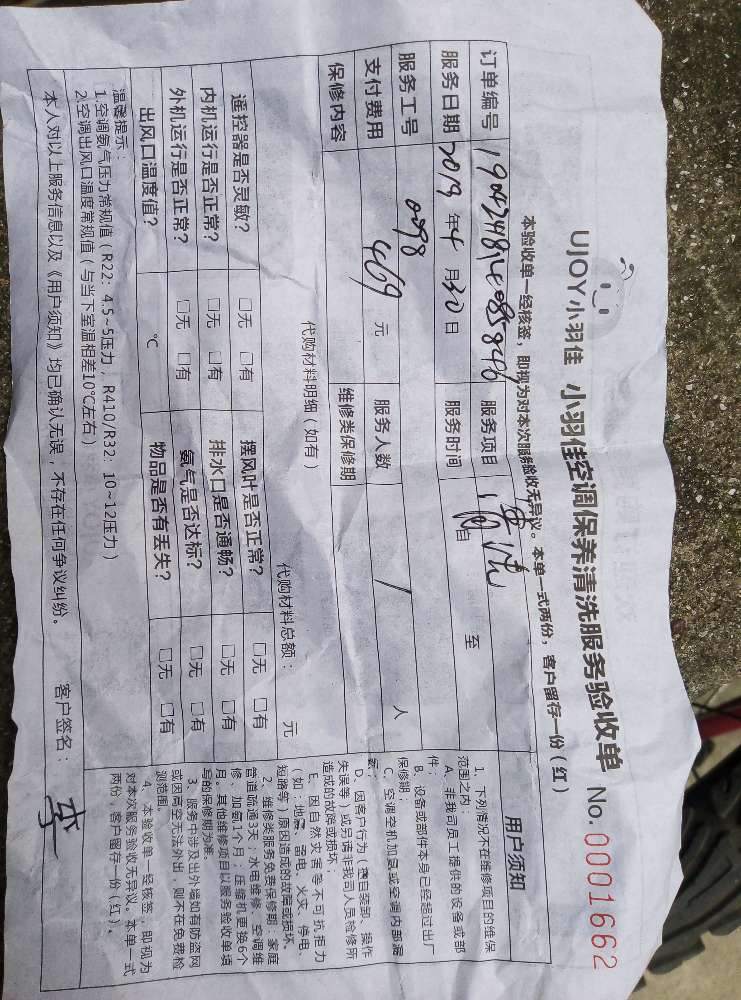 UJOY小羽佳 小羽佳空调保养清洗服务验收单 No.0001662
本验收单一经核签，即视为对本次服务验收无异议。本单一式两份，客户留存一份（红）
订单编号 服务项目 清洗
服务日期 2019 年 4 月 30 日 服务时间 自 至
服务工号 0098 服务人数 1 人
支付费用 469 元 维修类保修期
保修内容
代购材料明细（如有） 代购材料总额： 元
遥控器是否灵敏？ □无 □有 摆风叶是否正常？ □无 □有
内机运行是否正常？ □无 □有 排水口是否通畅？ □无 □有
外机运行是否正常？ □无 □有 氨气是否达标？ □无 □有
出风口温度值？ ℃ 物品是否有丢失？ □无 □有
温馨提示：
1.空调氨气压力常规值（R22：4.5~5压力，R410/R32：10~12压力）
2.空调出风口温度常规值（与当下室温相差10℃左右）
本人对以上服务信息以及《用户须知》均已确认无误，不存在任何争议纠纷。 客户签名： 李
用户须知
1、下列情况不在维修项目的维保
范围之内：
A、非我司员工提供的设备或部
件；
B、设备或部件本身已经超过出厂
保修期；
C、空调空机加氨或空调内部漏
氨；
D、因客户行为（擅自装卸、操作
失误等）或另请非我司人员检修所
造成的故障或损坏；
E、因自然灾害等不可抗拒力
（如：地震、雷电、火灾、停电、
短路等）原因造成的故障或损坏。
2、维修类服务免费保修期：家庭
管道疏通3天、水电维修、空调维
修、加氨1个月；压缩机更换6个
月。其他维修项目以服务验收单填
写的保修期为准。
3、服务中涉及出外墙如有防盗网
或因高空无法外出，则不在免费检
测范围。
4、本验收单一经核签，即视为
对本次服务验收无异议。本单一式
两份，客户留存一份（红）。